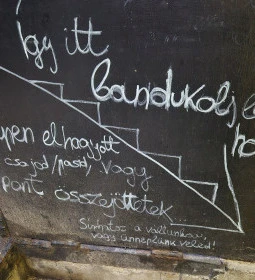 Így itt
bandukolj
elhagyott
csajod/pasid, vagy
pont összejöttetek
Sírhatsz a vállunkon,
vagy ünneplünk veled!